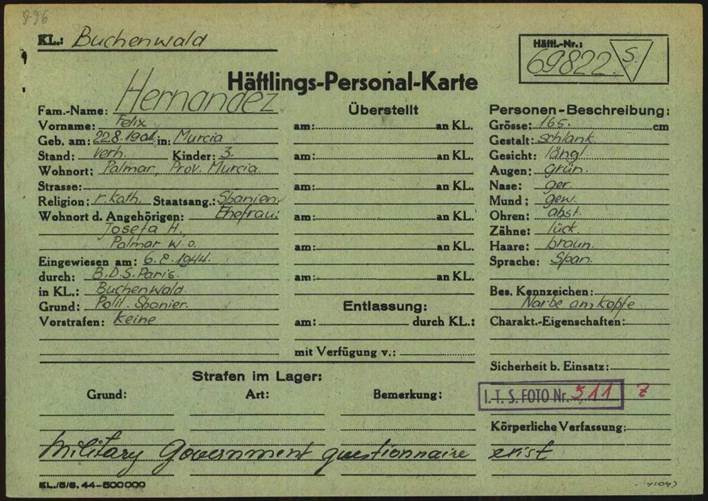 KL.: Buchenwald
Häftl.-Nr.:
69822 S
Häftlings-Personal-Karte
Fam.-Name: Hernandez
Vorname: Felix
Geb. am: in: Murcia
Stand: verh. Kinder: 3.
Wohnort: Palmar, Prov. Murcia
Strasse:
Religion: r. kath. Staatsang.: Spanien
Wohnort d. Angehörigen: Ehefrau:
Josefa H.,
Palmar w.o.
Eingewiesen am: 6.8.1944.
durch: B.D.S. Paris
in KL.: Buchenwald
Grund: Polit. Spanier.
Vorstrafen: Keine
Überstellt
am: an KL.
am: an KL.
am: an KL.
am: an KL.
am: an KL.
am: an KL.
Entlassung:
am: durch KL.:
mit Verfügung v.:
Personen-Beschreibung:
Grösse: 165. cm
Gestalt: schlank.
Gesicht: längl.
Augen: grün.
Nase: ger.
Mund: gew.
Ohren: abst.
Zähne: lück.
Haare: braun.
Sprache: Span.
Bes. Kennzeichen:
Narbe am Kopfe
Charakt.-Eigenschaften:
Sicherheit b. Einsatz:
I. T. S. FOTO Nr. 311
Körperliche Verfassung:
Strafen im Lager:
Grund: Art: Bemerkung:
Military Government questionnaire exist
KL./5/6. 44-500000